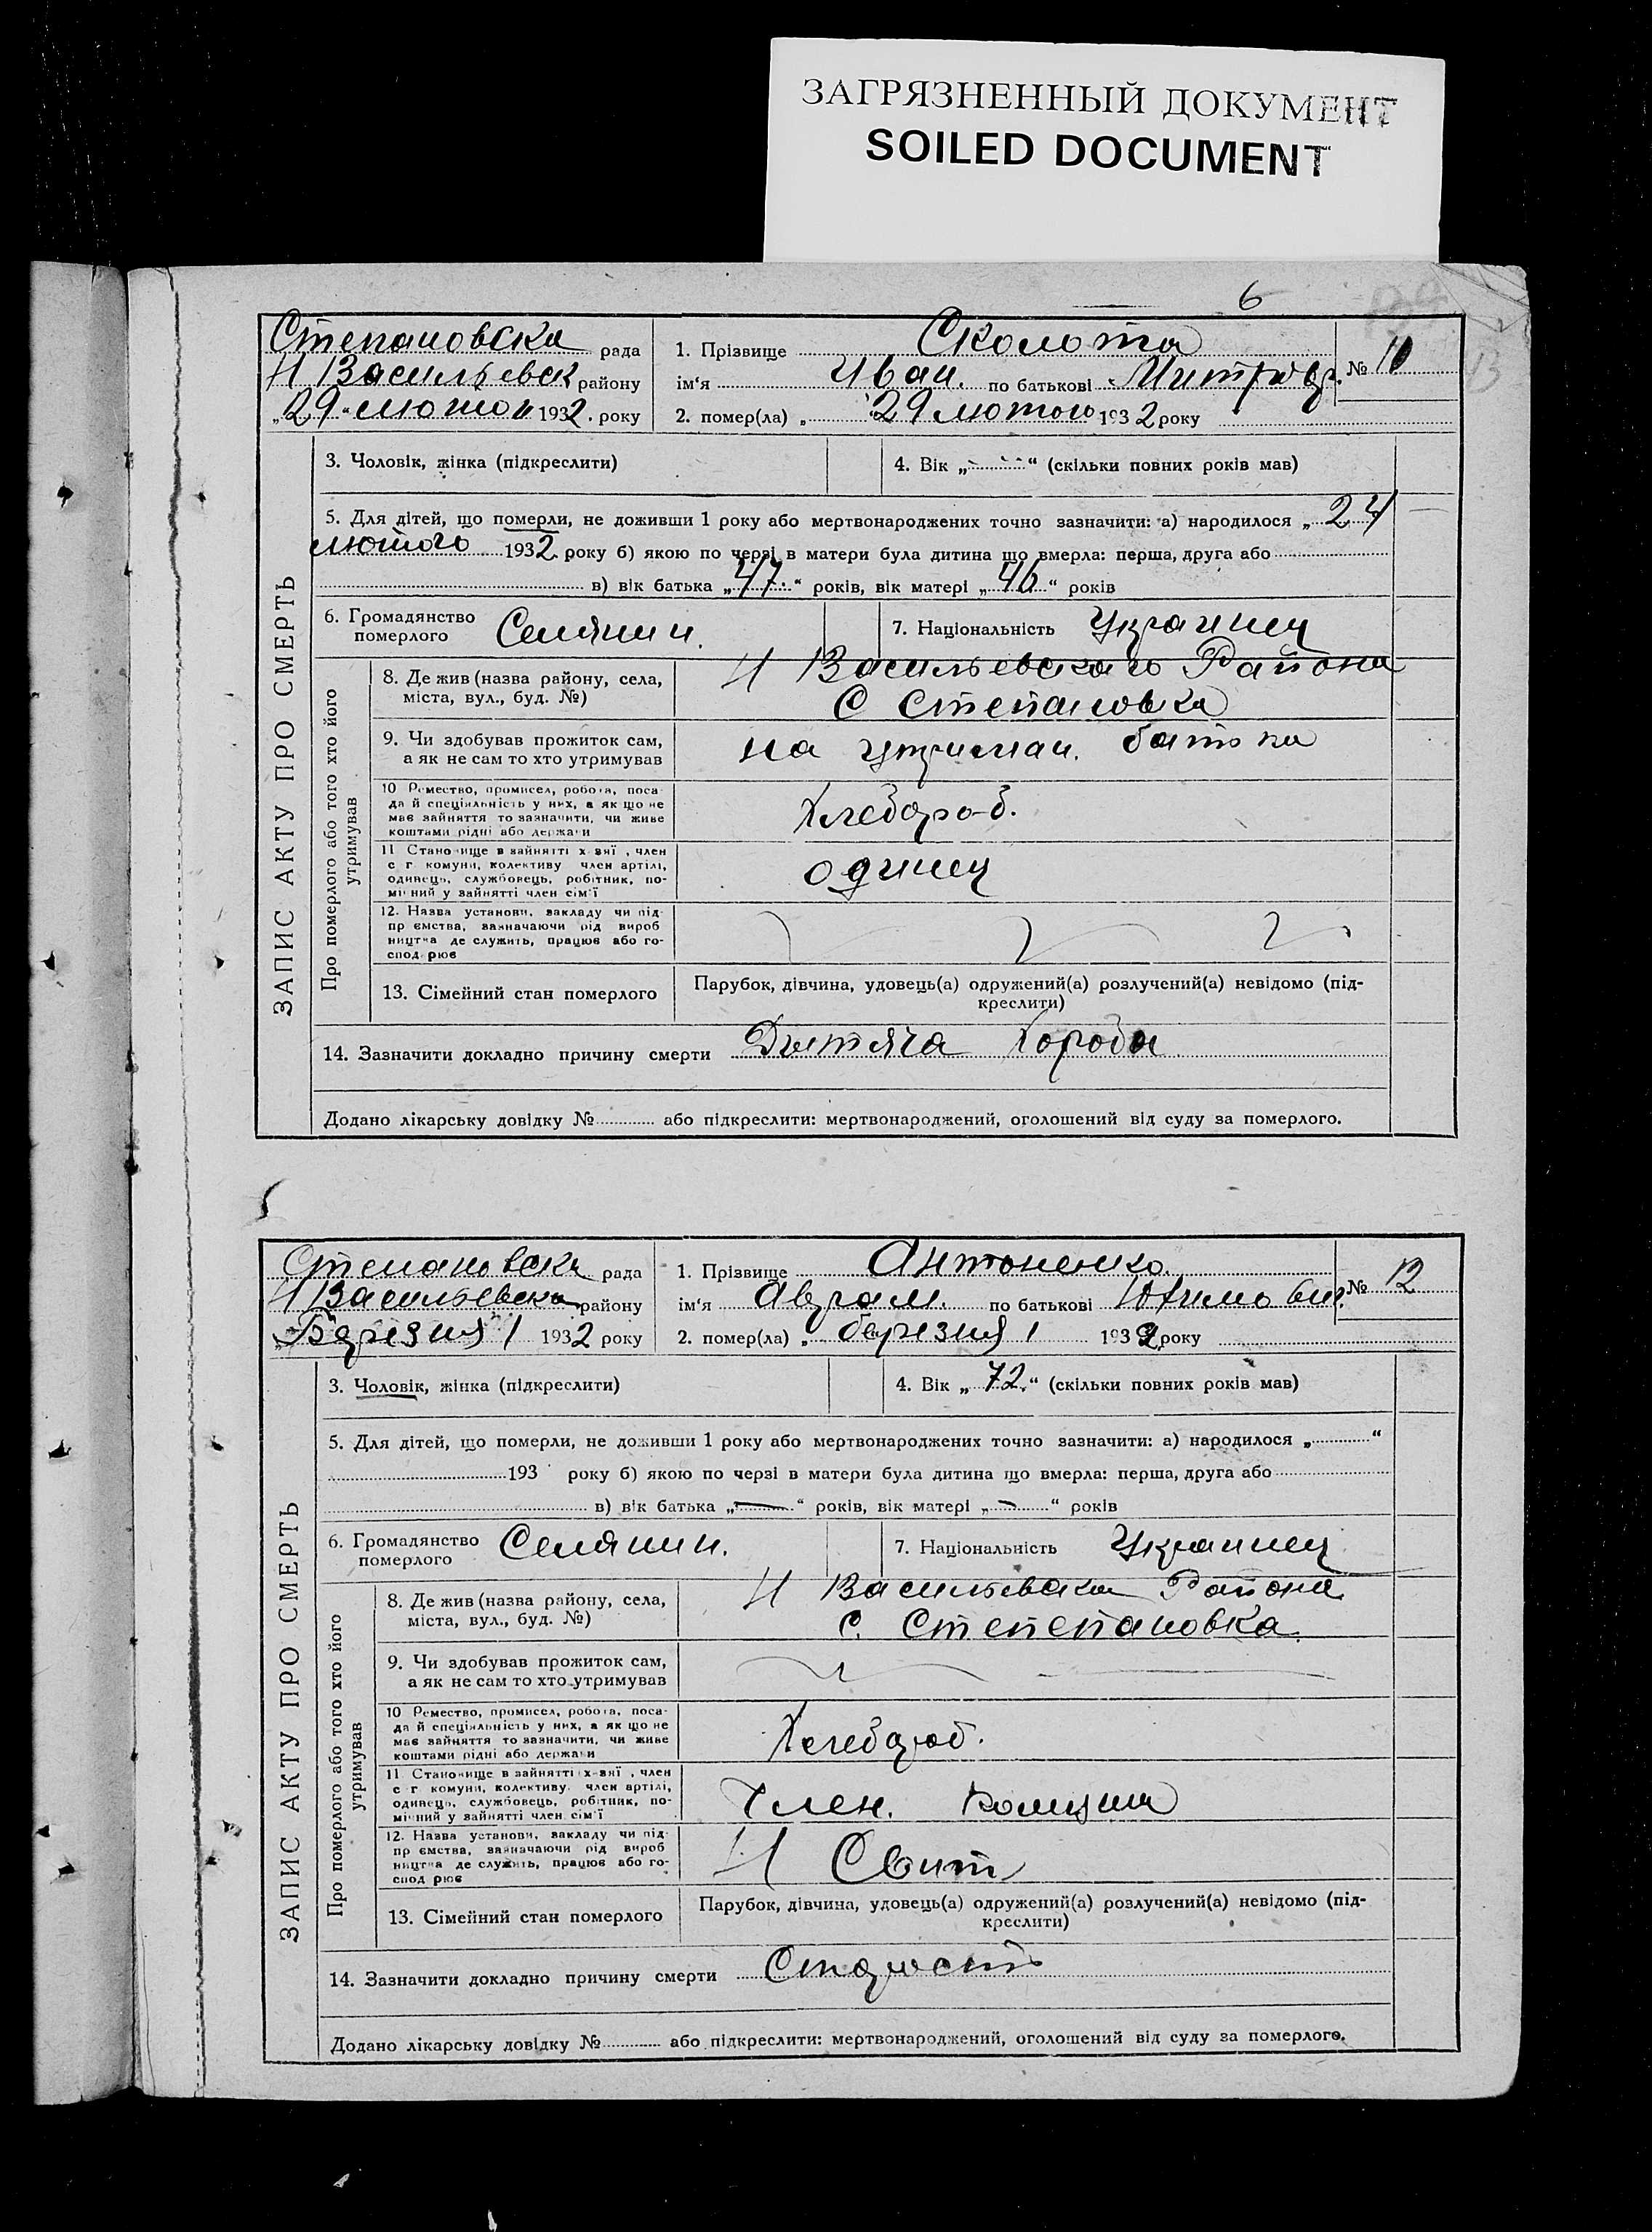 ЗАГРЯЗНЕННЫЙ ДОКУМЕНТ
SOILED DOCUMENT
6
Степановска рада
Н Васильевск району
„29“ лютого 1932. року
1. Прізвище Сколота
ім‘я Иван. по батькові Митров.
2. помер(ла) „29 лютого 1932 року
№ 10
3. Чоловік, жінка (підкреслити)
4. Вік „ “ (скільки повних років мав)
5. Для дітей, що померли, не доживши 1 року або мертвонароджених точно зазначити: а) народилося „24
лютого 1932 року б) якою по черзі в матери була дитина що вмерла: перша, друга або
в) вік батька „47“ років, вік матері „46“ років
6. Громадянство померлого Селянин.
7. Національність Украинец
ЗАПИС АКТУ ПРО СМЕРТЬ
Про померлого або того хто його утримував
8. Де жив (назва району, села,
міста, вул., буд. №)
Н Васильевского Района
С Степановка
9. Чи здобував прожиток сам,
а як не сам то хто утримував
на утриман. батька
10 Ремество, промисел, робота, поса-
да й спеціяльність у них, а як що не
має зайняття то зазначити, чи живе
коштами рідні або держави
Хлебороб.
11 Становище в зайнятті х-вяї, член
с г комуни, колективу член артілі,
одинець, службовець, робітник, по-
мічний у зайнятті член сім‘ї
одинец
12. Назва установи, закладу чи під-
пр ємства, зазначаючи рід вироб
ництва де служить, працює або го-
спод рює
13. Сімейний стан померлого
Парубок, дівчина, удовець(а) одружений(а) розлучений(а) невідомо (під-
креслити)
14. Зазначити докладно причину смерти Дитяча Хороба
Додано лікарську довідку № або підкреслити: мертвонароджений, оголошений від суду за померлого.
Степановска рада
Н Васильевска району
„Березня 1 1932 року
1. Прізвище Антоненко.
ім‘я Аврам. по батькові Юхимович.
2. помер(ла) „ березня 1 1932 року
№ 12
3. Чоловік, жінка (підкреслити)
4. Вік „72.“ (скільки повних років мав)
5. Для дітей, що померли, не доживши 1 року або мертвонароджених точно зазначити: а) народилося „ “
193 року б) якою по черзі в матери була дитина що вмерла: перша, друга або
в) вік батька „—“ років, вік матері „—“ років
6. Громадянство померлого Селянин.
7. Національність Украинец
ЗАПИС АКТУ ПРО СМЕРТЬ
Про померлого або того хто його утримував
8. Де жив (назва району, села,
міста, вул., буд. №)
Н Васильевска Района
с. Степепановка
9. Чи здобував прожиток сам,
а як не сам то хто утримував
10 Ремество, промисел, робота, поса-
да й спеціяльність у них, а як що не
має зайняття то зазначити, чи живе
коштами рідні або держави
Хлебороб.
11 Становище в зайнятті х-вяї, член
с г комуни, колективу член артілі,
одинець, службовець, робітник, по-
мічний у зайнятті член сім‘ї
Член. Комуни
12. Назва установи, закладу чи під-
пр ємства, зазначаючи рід вироб
ництва де служить, працює або го-
спод рює
Н Свит
13. Сімейний стан померлого
Парубок, дівчина, удовець(а) одружений(а) розлучений(а) невідомо (під-
креслити)
14. Зазначити докладно причину смерти Старость
Додано лікарську довідку № або підкреслити: мертвонароджений, оголошений від суду за померлого.